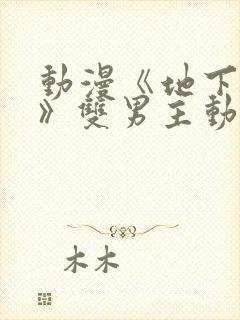 動漫《地下
》雙男主動
木木